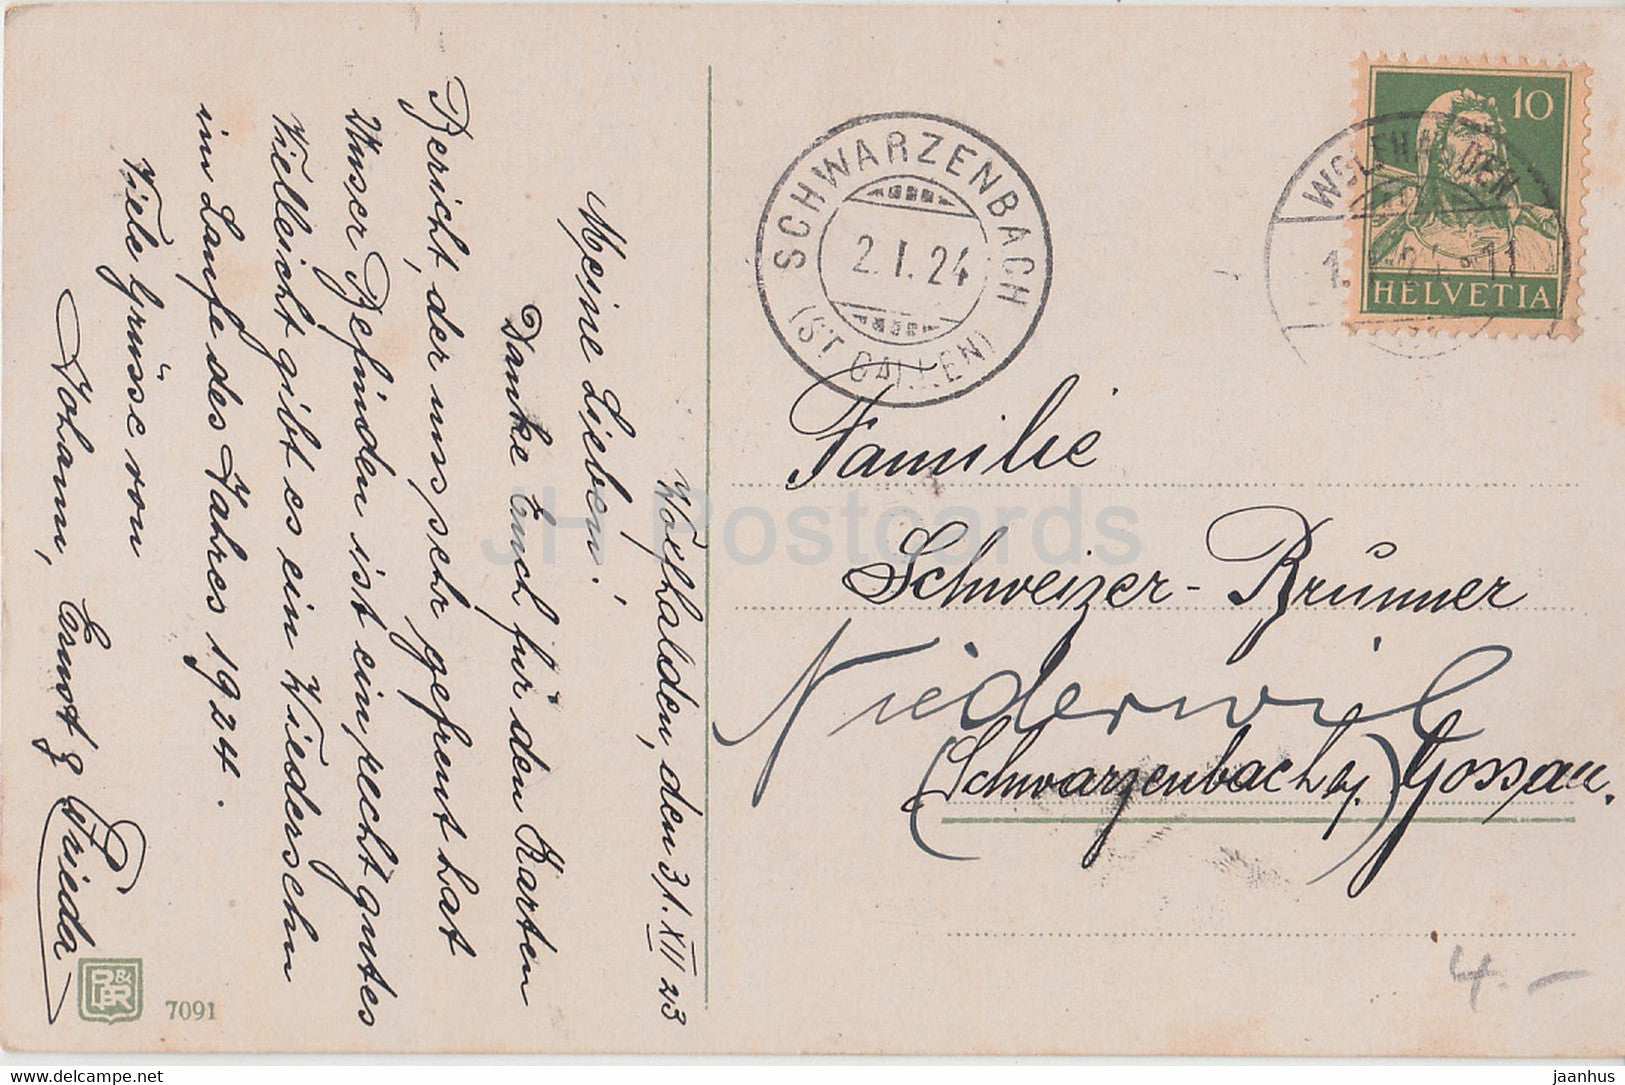 Wolfhalden, den 31. XII 23
Meine Lieben!
Danke Euch für den Karten
Bericht, der uns sehr gefreut hat
Unser Befinden ist ein recht gutes
Vielleicht gibt es ein Wiedersehn
im Laufe des Jahres 1924.
Viele Grüsse von
Johann, Ernst & Frieda
P&R
7091
SCHWARZENBACH
2.I.24
(ST GALLEN)
WOLFHALDEN
10
HELVETIA
Familie
Schweizer-Brunner
Niederwil
(Schwarzenbach b/) Gossau.
4.-
JH Postcards
Picture from delcampe.net
jaanhus